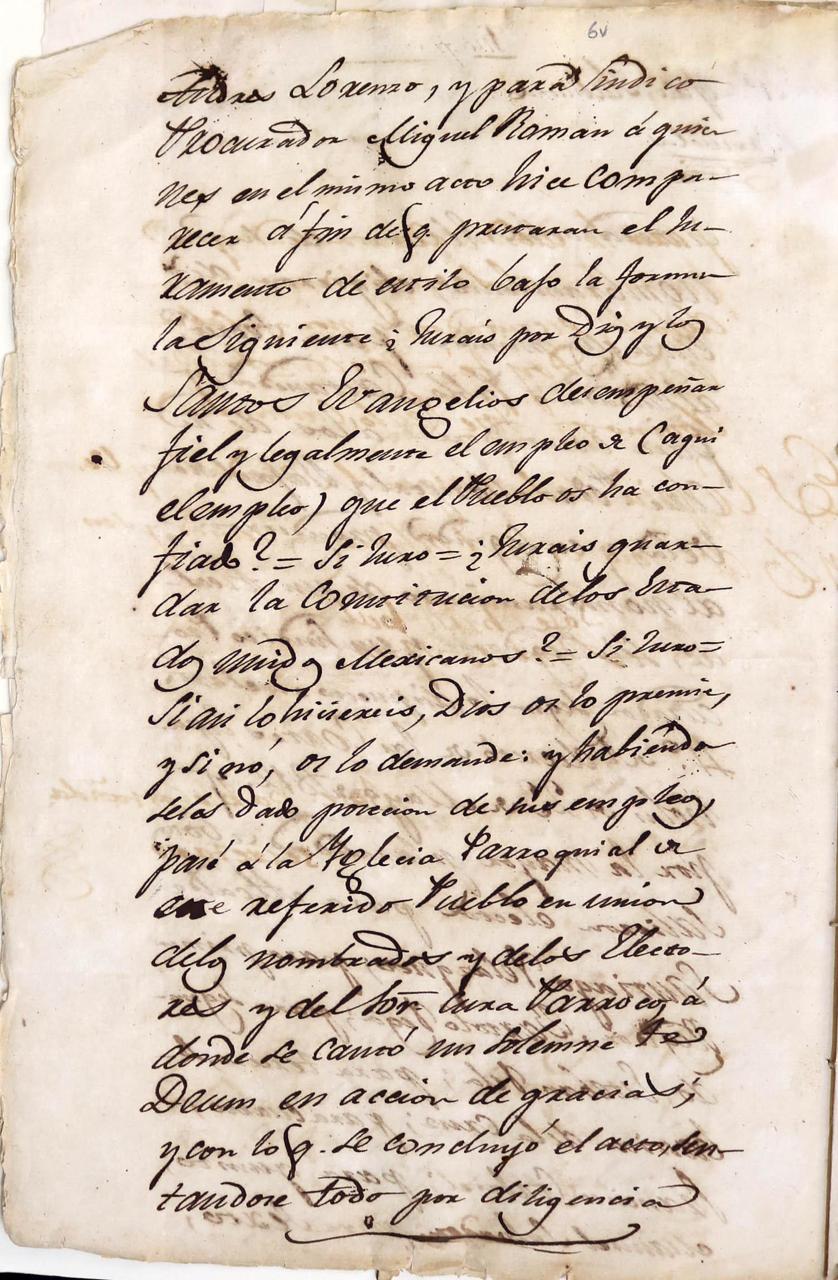 6v
Andres Lorenzo, y para Sindico
Procurador Miguel Roman á quie-
nes en el mismo acto hice compa-
recer á fin de q. prestaran el Ju-
ramento de estilo bajo la formu-
la Siguiente ¿ Jurais por Dios y los
Santos Evangelios desempeñar
fiel y legalmente el empleo de (aqui
el empleo) que el Pueblo os ha con-
fiado? = Si Juro = ¿ Jurais guar-
dar la Constitucion de los Esta-
dos Unidos Mexicanos? = Si Juro =
Si asi lo hiciereis, Dios os lo premie,
y si nó, os lo demande: y habiendo
selas dado posecion de sus empleos,
pasé á la Yglecia Parroquial de
este referido Pueblo en union
de los nombrados y de los Electo-
res y del Sor. Cura Parroco, á
donde se cantó un Solemne Te
Deum en accion de gracias;
y con lo q. se concluyó el acto, sen-
tandose todo por diligencia